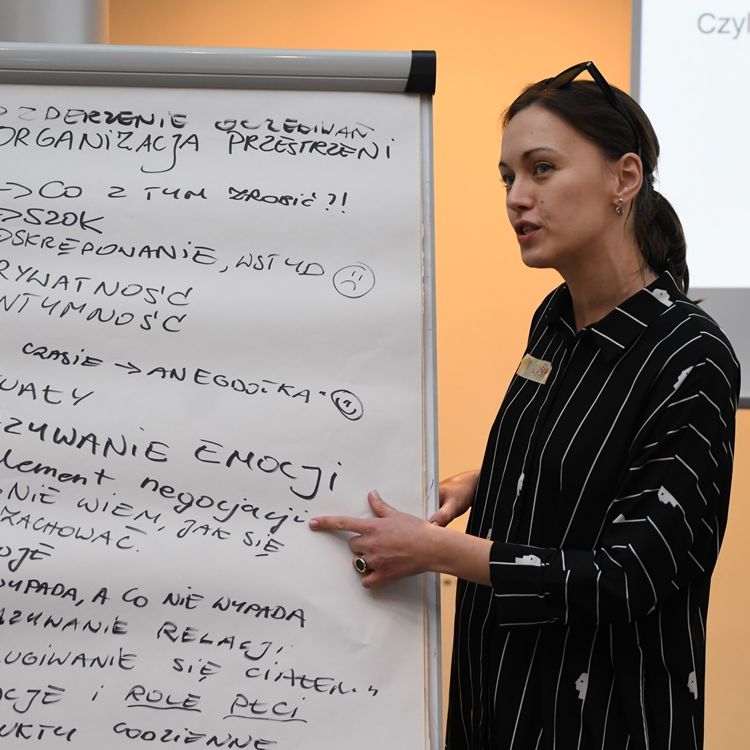 ZDERZENIE OCZEKIWAŃ
ORGANIZACJA PRZESTRZENI
→ CO Z TYM ZROBIĆ?!
→ SZOK
OSKRĘPOWANIE, WSTYD
RYWATNOŚĆ
NTYMNOŚĆ
CZASIE → ANEGDOTKA"
UAŁY
ZYWANIE EMOCJI
element negocjacji
NIE WIEM, JAK SIĘ
ZACHOWAĆ.
OJE
WYPADA, A CO NIE WYPADA
AZYWANIE RELACJI
ŁUGIWANIE SIĘ CIAŁEM"
CJE i ROLE PŁCI
UKTY CODZIENNE
Czyl